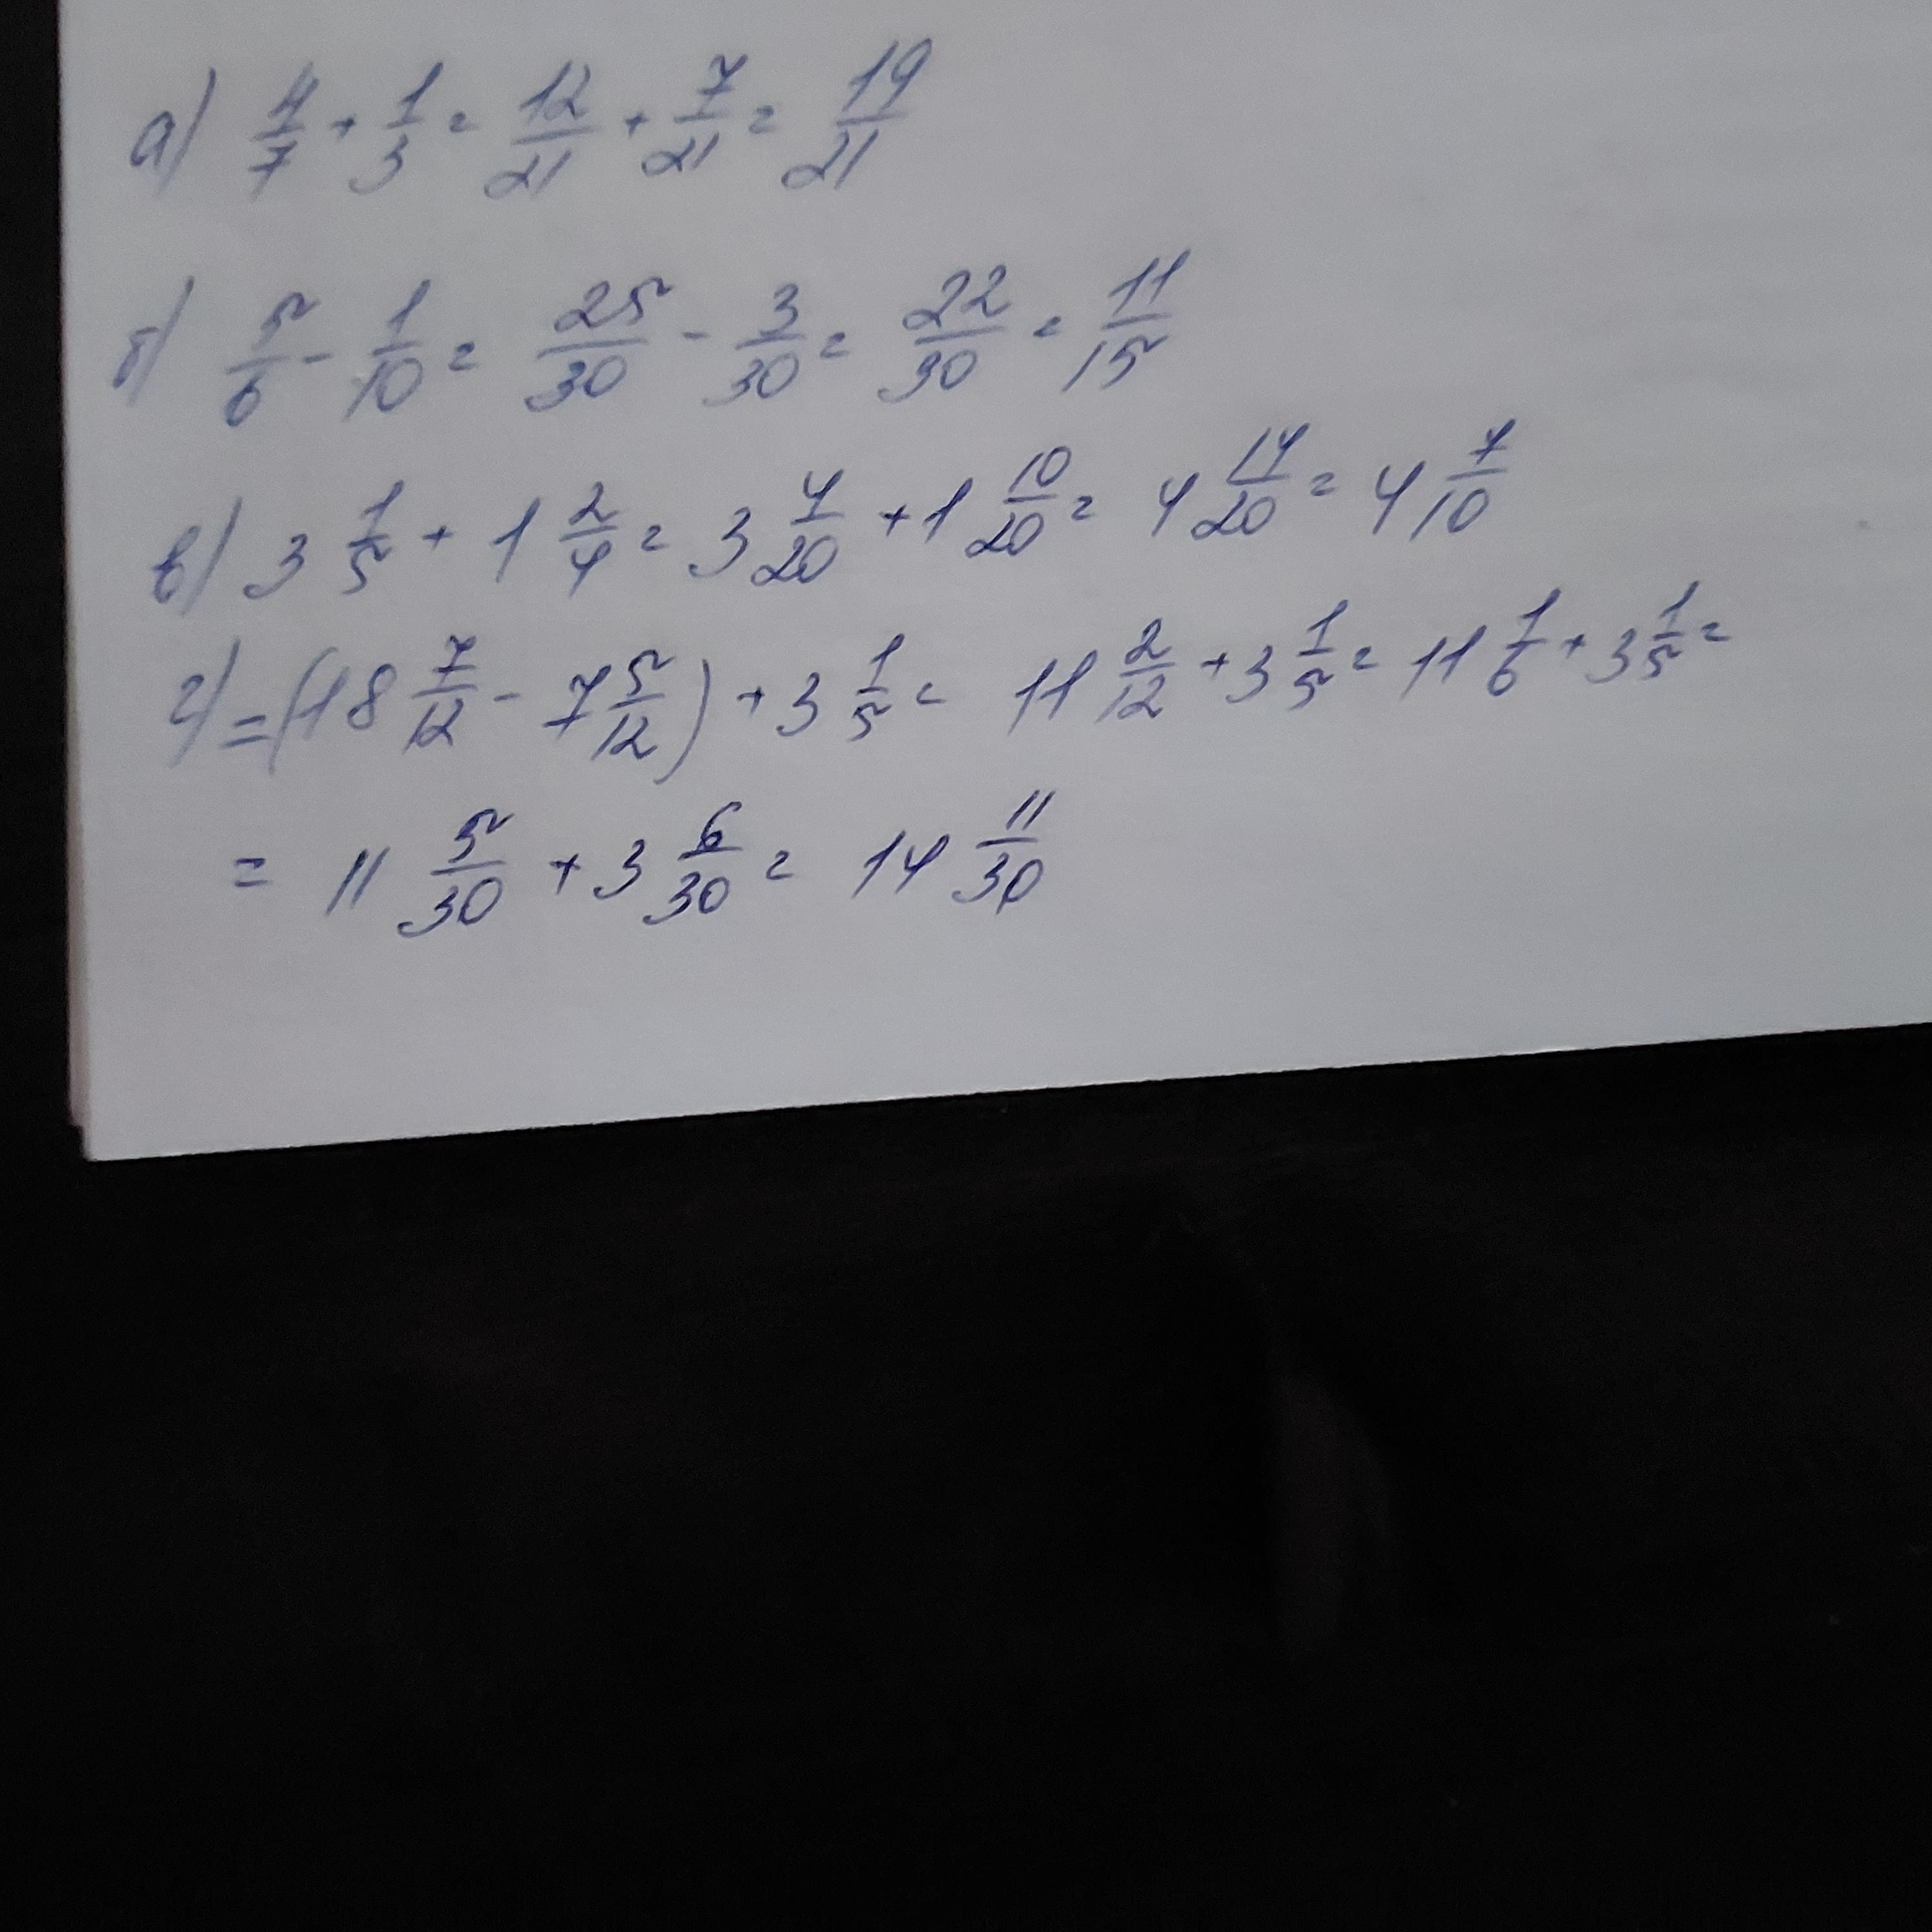 а) 4/7 + 1/3 = 12/21 + 7/21 = 19/21
б) 5/6 - 1/10 = 25/30 - 3/30 = 22/30 = 11/15
в) 3 1/5 + 1 2/4 = 3 4/20 + 1 10/20 = 4 14/20 = 4 7/10
г) = (18 7/12 - 7 5/12) + 3 1/5 = 11 2/12 + 3 1/5 = 11 1/6 + 3 1/5 =
= 11 5/30 + 3 6/30 = 14 11/30